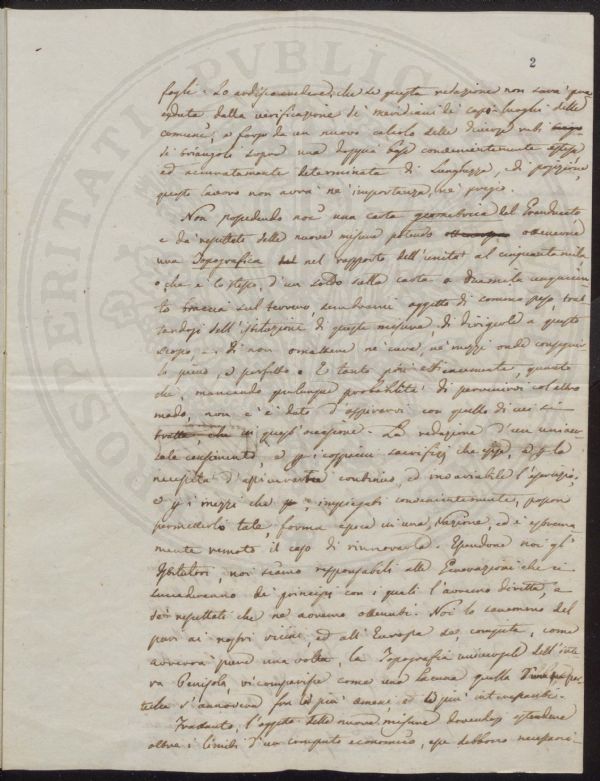 2
fogli. Io ardisco credere, che se questa relazione non sarà pre
ceduta dalla verificazione de' meridiani de' capo-luoghi delle
comuni, e forse da un nuovo calcolo delle diverse reti
di triangoli sopra una doppia base convenientemente estesa
ed accuratamente determinata di lunghezza, e di posizione,
questo lavoro non avrà nè importanza, nè pregio.
Non possedendo noi una carta geometrica del Granducato
e da' resultati delle nuove misure potendo ottenerne
una Topografica nel rapporto dell'unità al cinquantamila
o che è lo stesso, d'un soldo sulla carta a duemila cinquecen-
to braccia sul terreno, sembrami oggetto di sommo peso, trat
tandosi dell'istituzione di queste misure, di dirigerle a questo
scopo, e di non omettere nè cura, nè mezzi onde conseguir
lo pieno, e perfetto. E tanto più efficacemente, quanto
che, mancando qualunque probabilità di pervenirvi in altro
modo, non c'è dato d'aspirarvi con quello di cui si
tratta che in quest'occasione. La redazione d'un univer
sale censimento, e i cospicui sacrifizj che esige, e la
necessità d' continuo, ed invariabile l'esercizio,
e i mezzi che, impiegati convenientemente, posson
permetterlo tale, forma epoca in una Nazione, ed è estrema
mente remoto il caso di rinnovarla. Essendone noi gl'
Istitutori, noi siamo responsabili alle Generazioni che ci
succederanno de' principj con i quali l'avremo diretta, e
de' resultati che ne avremo ottenuti. Noi lo saremmo del
pari ai nostri vicini, ed all'Europa se, compita, come
avverrà pure una volta, la Topografia universale dell'inte
ra Penisola, vi comparisse come una lacuna quella
s'annovera fra le più amene ed le più interessanti.
Frattanto, l'oggetto delle nuove misure dovendosi estendere
oltre i limiti d'un computo economico, esse debbono necessari-